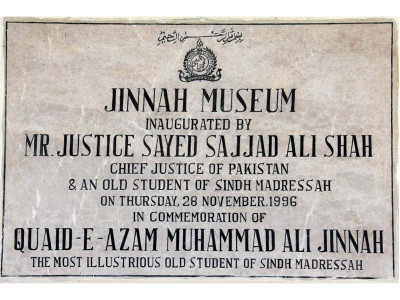 بسم اللہ الرحمن الرحیم
JINNAH MUSEUM
INAUGURATED BY
MR. JUSTICE SAYED SAJJAD ALI SHAH
CHIEF JUSTICE OF PAKISTAN
& AN OLD STUDENT OF SINDH MADRESSAH
ON THURSDAY, 28 NOVEMBER, 1996
IN COMMEMORATION OF
QUAID-E-AZAM MUHAMMAD ALI JINNAH
THE MOST ILLUSTRIOUS OLD STUDENT OF SINDH MADRESSAH